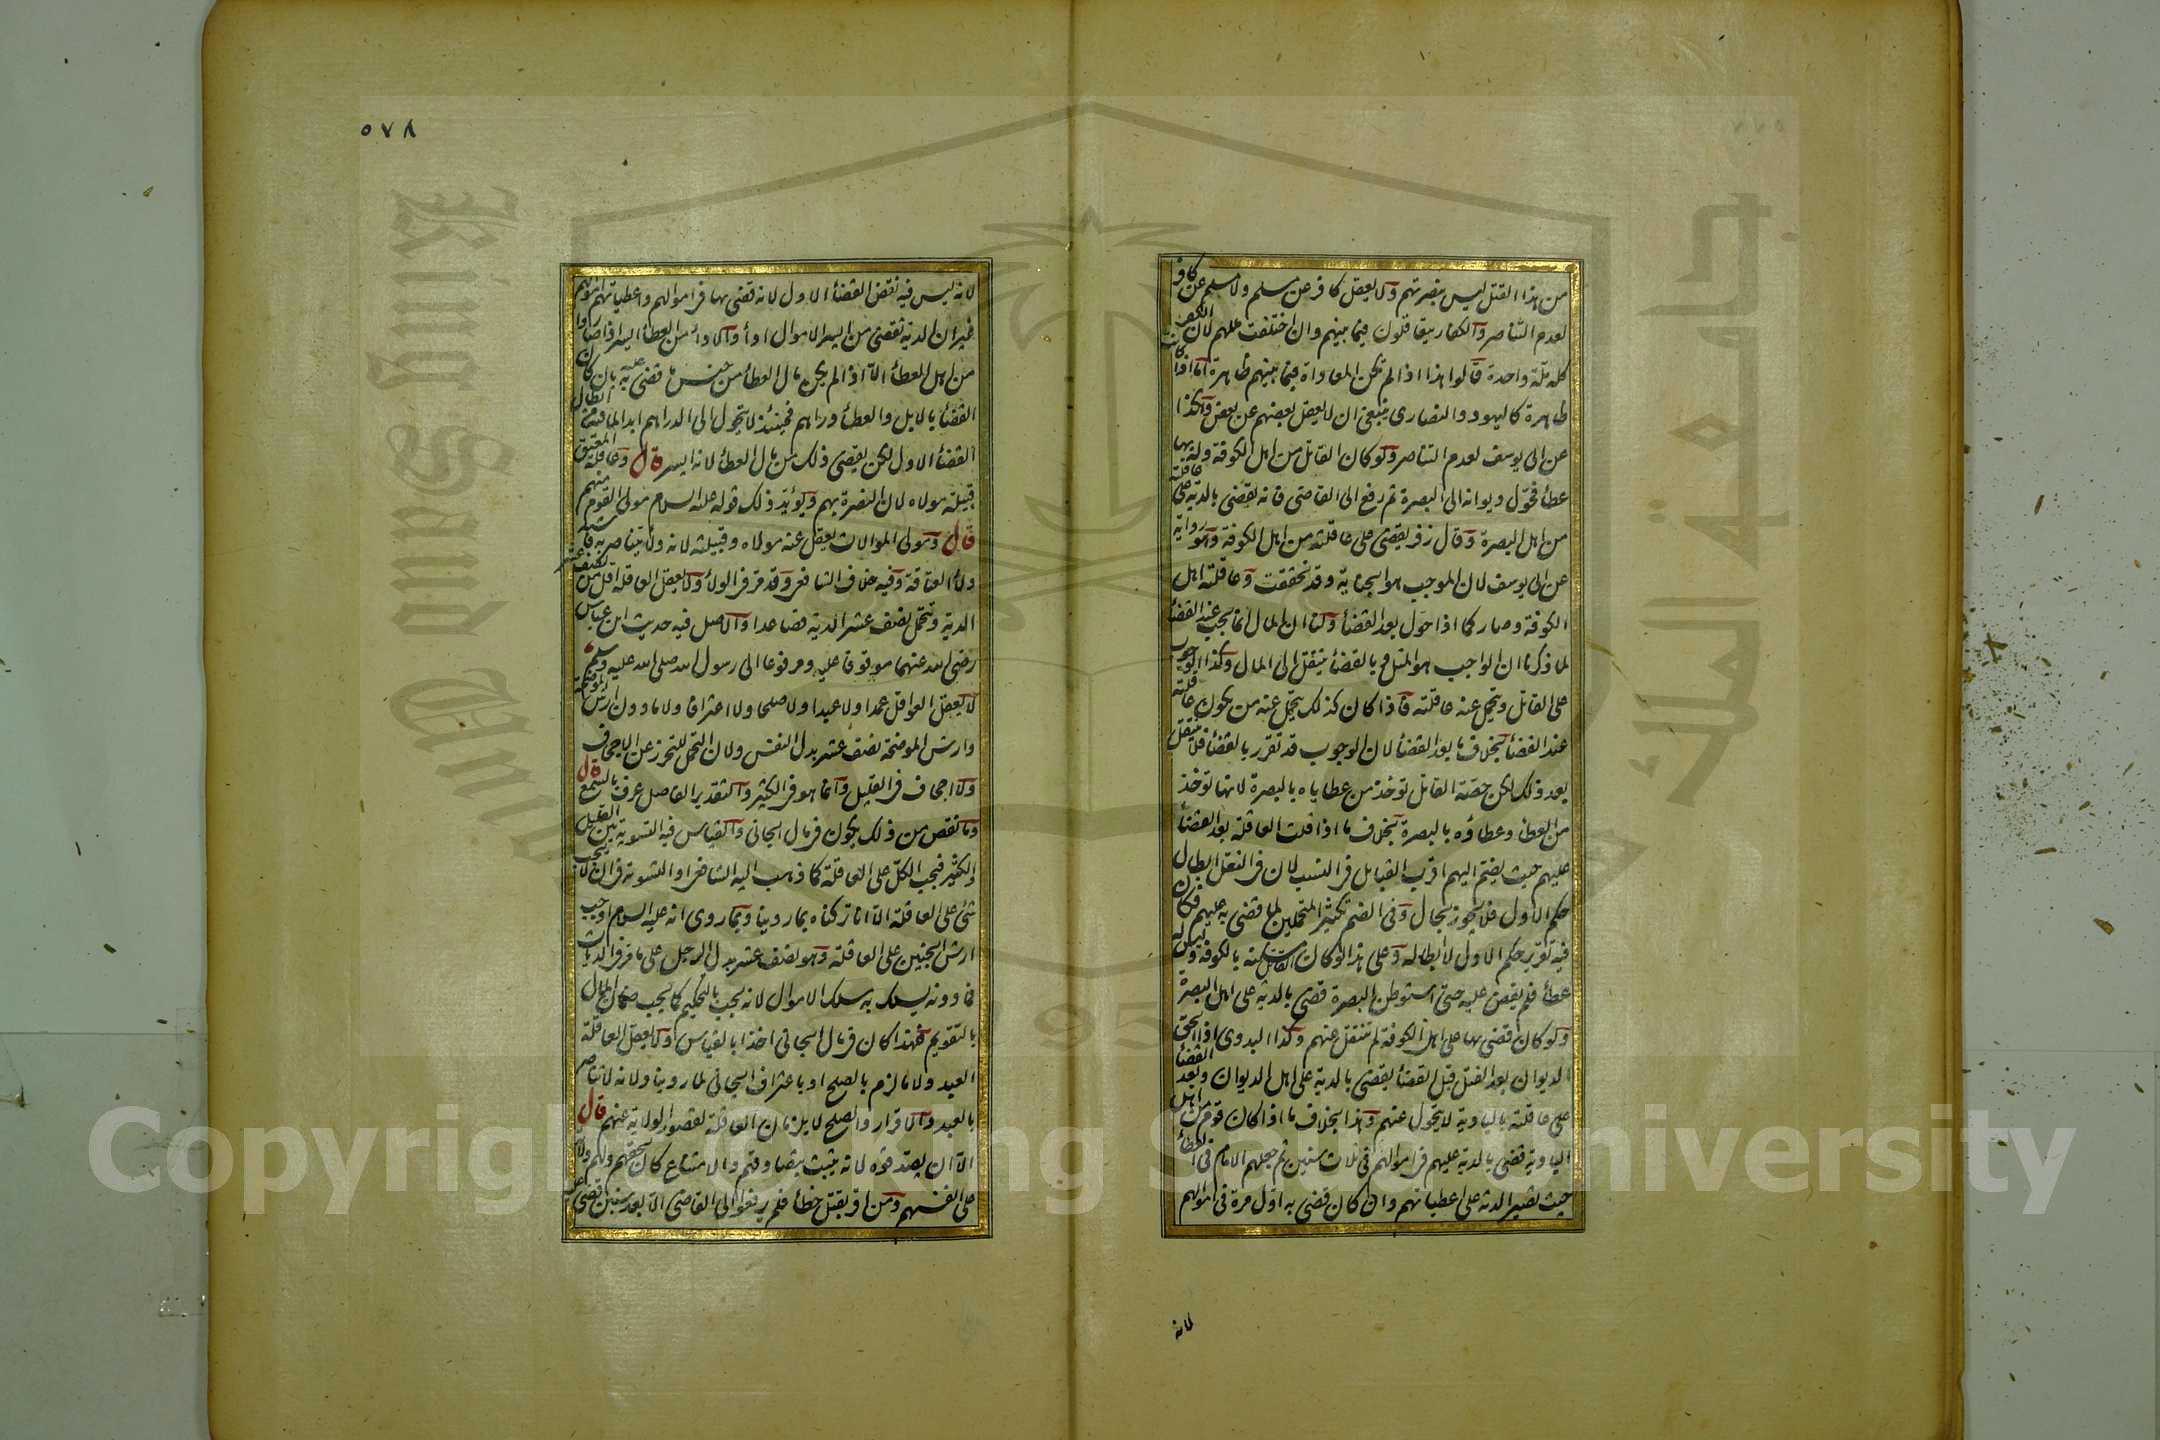 من هذا القتل ليس بنصرتهم ولا يعقل كافر عن مسلم ولا مسلم عن كافر
لعدم التناصر والكفار يتعاقلون فيما بينهم وان اختلفت مللهم لان الكفر
كله ملة واحدة قالوا هذا اذا لم تكن المعاداة فيما بينهم ظاهرة اما اذا كانت
ظاهرة كاليهود والنصارى ينبغى ان لا يعقل بعضهم عن بعض وهكذا
عن ابى يوسف لعدم التناصر ولو كان القاتل من اهل الكوفة وله بها
عطأ فحوّل ديوانه الى البصرة ثم رفع الى القاضى فانه يقضى بالدية على عاقلته
من اهل البصرة وقال زفر يقضى على عاقلته من اهل الكوفة وهو رواية
عن ابى يوسف لان الموجب هو الجناية وقد تحققت وعاقلته اهل
الكوفة وصار كما اذا حوّل بعد القضأ ولنا ان المال انما يجب عند القضأ
لما ذكرنا ان الواجب هو المثل وبالقضأ ينتقل الى المال وكذا الوجوب
على القاتل ويتحمل عنه عاقلته فاذا كان كذلك يتحمل عنه من يكون عاقلته
عند القضأ بخلاف ما بعد القضأ لان الوجوب قد تقرر بالقضأ فلا ينتقل
بعد ذلك لكن حصّة القاتل تؤخذ من عطاياه بالبصرة لانها تؤخذ
من العطأ وعطاؤه بالبصرة بخلاف ما اذا قلت العاقلة بعد القضأ
عليهم حيث يضم اليهم اقرب القبايل فى النسب لان فى النقل ابطال
حكم الاول فلا يجوز بحال وفى الضم تكثير المتحملين لما قضى به عليهم فكان
فيه تقرير حكم الاول لا ابطاله وعلى هذا لو كان القاتل مسكنه بالكوفة وليس له
عطأ فلم يقض عليه حتى استوطن البصرة قضى بالدية على اهل البصرة
ولو كان قضى بها على اهل الكوفة لم تنتقل عنهم وكذا البدوى اذا التحق
الديوان بعد القتل قبل القضأ يقضى بالدية على اهل الديوان وبعد القضأ
على عاقلته بالبادية لا يتحول عنهم وهذا بخلاف ما اذا كان قوم من اهل
البادية قضى بالدية عليهم فى اموالهم فى ثلاث سنين ثم جعلهم الامام فى العطأ
حيث تصير الدية على اعطياتهم وان كان قضى به اول مرة فى اموالهم
لانه
٥٧٨
لانه ليس فيه نقض القضأ الاول لانه قضى بها فى اموالهم واعطياتهم اموالهم
غير ان الدية تقضى من ايسر الاموال ادأ والادأ من العطأ ايسر اذا صاروا
من اهل العطأ الا اذا لم يكن مال العطأ من جنس ما قضى به عليه بان كان
القضأ بالابل والعطأ دراهم فحينئذ لا يتحول الى الدراهم ابدا لما فيه من ابطال
القضأ الاول لكن يقضى ذلك من مال العطأ لانه ايسر قال وعاقلة المعتق
قبيلة مولاه لان النصرة بهم ويؤيد ذلك قوله عليه السلام مولى القوم منهم
قال ومولى الموالات يعقل عنه مولاه وقبيلته لانه ولأ يتناصر به فاشبه
ولأ العتاقة وفيه خلاف الشافعى وقد مرّ فى الولأ ولا يعقل العاقلة اقل من نصف عشر
الدية ويتحمل نصف عشر الدية فصاعدا والاصل فيه حديث ابن عباس
رضى الله عنهما موقوفا عليه ومرفوعا الى رسول الله صلى الله عليه وسلم
لا يعقل العواقل عمدا ولا عبدا ولا صلحا ولا اعترافا ولا ما دون ارش الموضحة
وارش الموضحة نصف عشر بدل النفس ولان التحمل للتحرز عن الاجحاف
ولا اجحاف فى القليل وانما هو فى الكثير والتقدير الفاصل عرف بالسمع قال
وما نقص من ذلك يكون فى مال الجانى والقياس فيه التسوية بين القليل
والكثير فيجب الكل على العاقلة كما ذهب اليه الشافعى او التسوية فى ان لا يجب
شئ على العاقلة الا انا تركناه بما روينا وبما روى انه عليه السلام اوجب
ارش الجنين على العاقلة وهو نصف عشر بدل الرجل على ما مر فى الديات
فما دونه يسلك به مسلك الاموال لانه يجب بالتحكيم كما يجب ضمان المال
بالتقويم فلهذا كان فى مال الجانى اخذا بالقياس ولا يعقل العاقلة
العبد ولا ما لزم بالصلح او باعتراف الجانى لما روينا ولانه لا تناصر
بالعبد والاقرار والصلح لا يلزمان العاقلة لقصور الولاية عنهم قال
الا ان يصدقوه لانه يثبت بتصادقهم والامتناع كان لحقهم ولهم ولاية
على انفسهم ومن اقر بقتل خطأ فلم يرفعوا الى القاضى الا بعد سنين قضى عليه